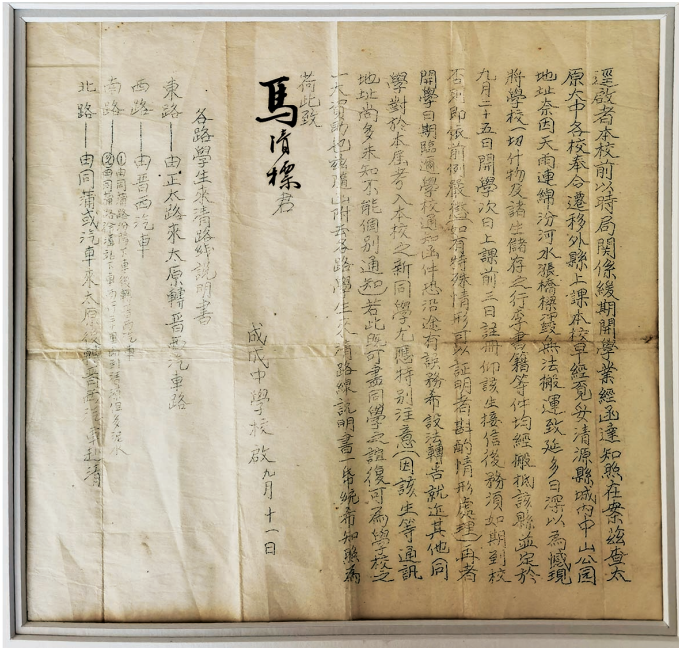 逕啟者本校前以時局關係緩期開學業經函達知照在案茲查太
原大中各校奉令遷移外縣上課本校早經覓妥清源縣城內中山公園
地址奈因天雨連綿汾河水漲橋樑沖毀無法搬運致延多日深以為憾現
將學校一切什物及諸生儲存之行李書籍等件均經搬抵該縣並定於
九月二十五日開學次日上課前三日註冊仰該生接信後務須如期到校
否則即依前例懲如有特殊情形可以証明者斟酌情形處理)再者
開學日期臨邇學校通函件恐沿途有誤務希設法轉告就近其他同
學對於本屆考入本校之新同學尤應特別注意(因該生等通訊
地址尚多未知不能個別通知)若此既可盡同學之誼復可為學校之
一大也茲隨函附去各路學生來清路線說明書一帋統希知照為
荷此致
馬清標君
成成中學校啟九月十一日
各路學生來清路線說明書
東路——由正太路來太原轉晉西汽車路
西路——由晉西汽車
南路——①由同蒲路
②
北路——由同蒲或汽車來太原轉晉西汽車赴清